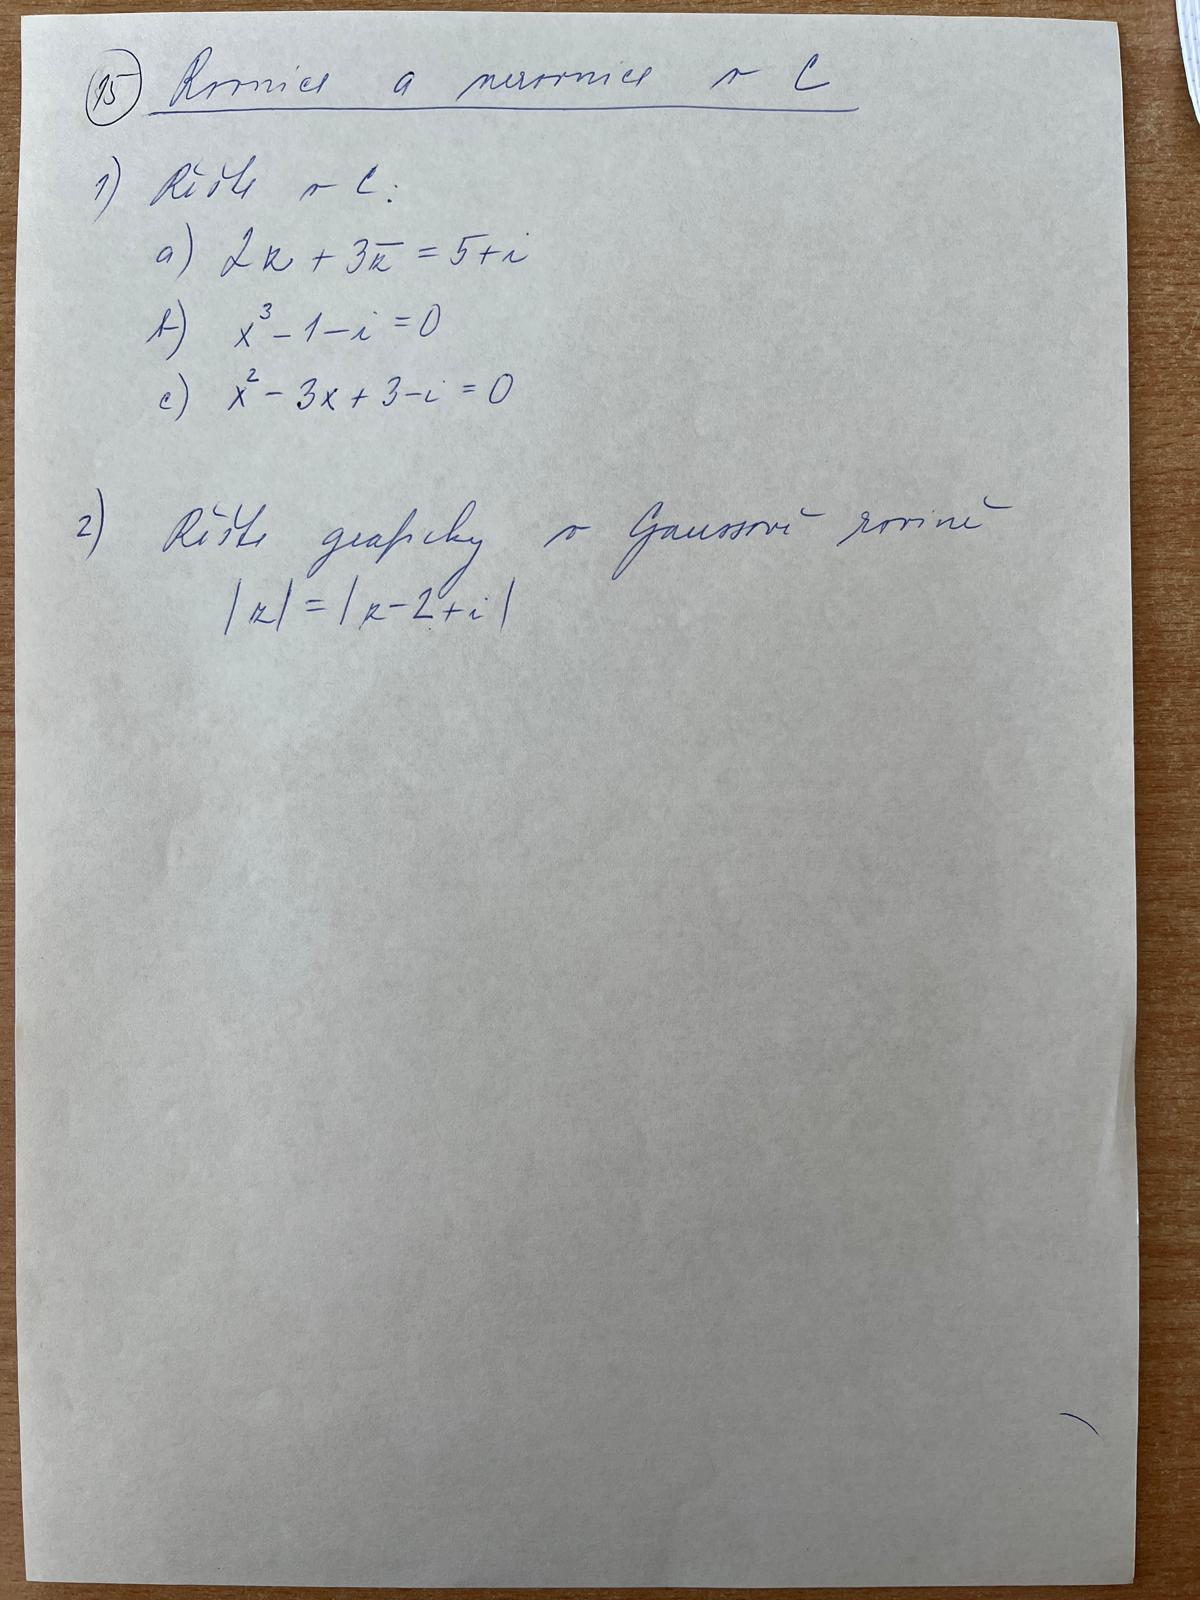 15 Rovnice a nerovnice v C
1) Řešte v C:
a) 2z + 3z̄ = 5+i
b) x³ - 1 - i = 0
c) x² - 3x + 3 - i = 0
2) Řešte graficky v Gaussově rovině
|z| = |z - 2 + i|